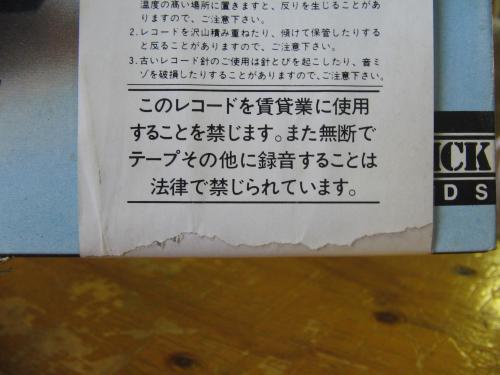 温度の高い場所に置きますと、反りを生じることがあ
りますので、ご注意下さい。
2.レコードを沢山積み重ねたり、傾けて保管したりする
と反ることがありますので、ご注意下さい。
3.古いレコード針のご使用は針とびを起こしたり、音ミ
ゾを破損したりすることがありますので、ご注意下さい。
このレコードを賃貸業に使用
することを禁じます。また無断で
テープその他に録音することは
法律で禁じられています。
ICK
DS